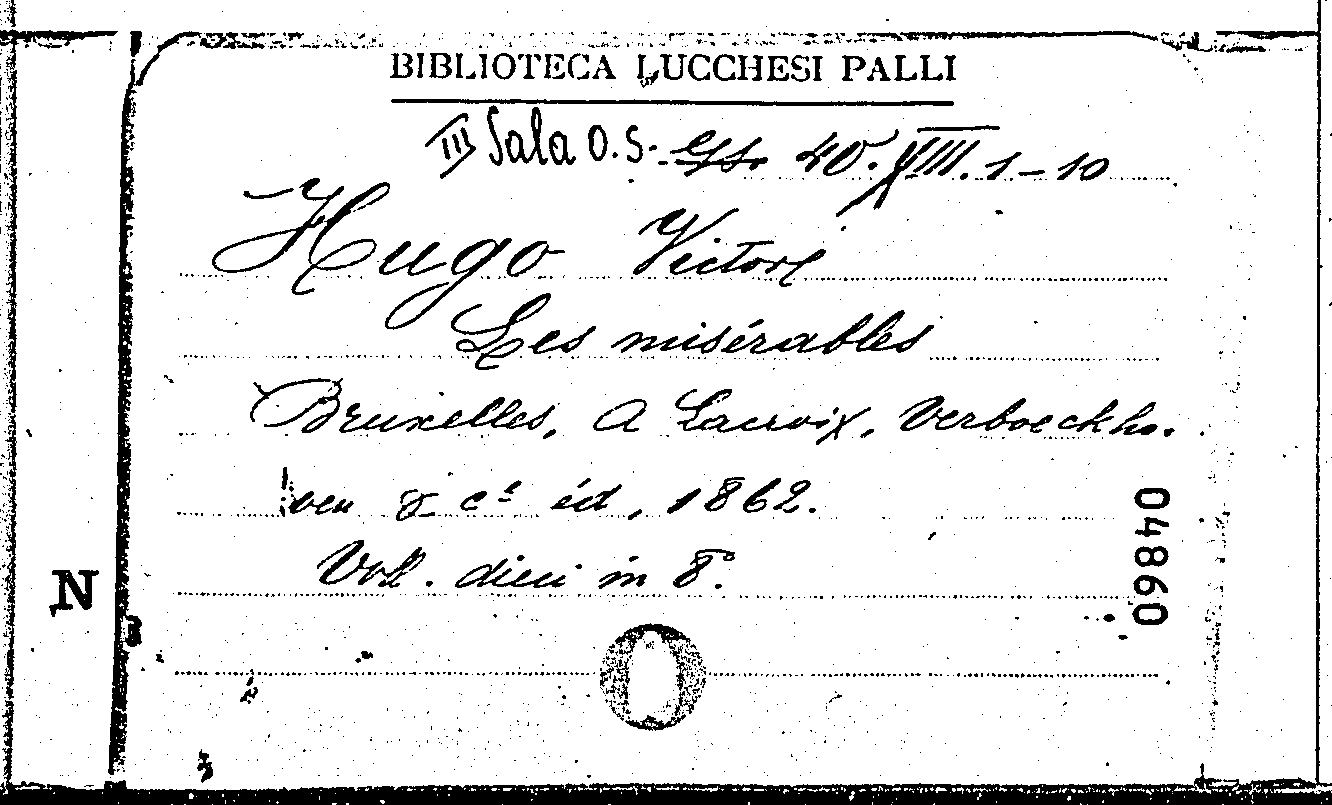 BIBLIOTECA LUCCHESI PALLI
III Sala O.S. 40. XIII. 1-10
Hugo Victor
Les misérables
Bruxelles, A Lacroix, Verboeckho-
ven & Cᵉ éd, 1862.
Voll. dieci in 8º.
04860
N